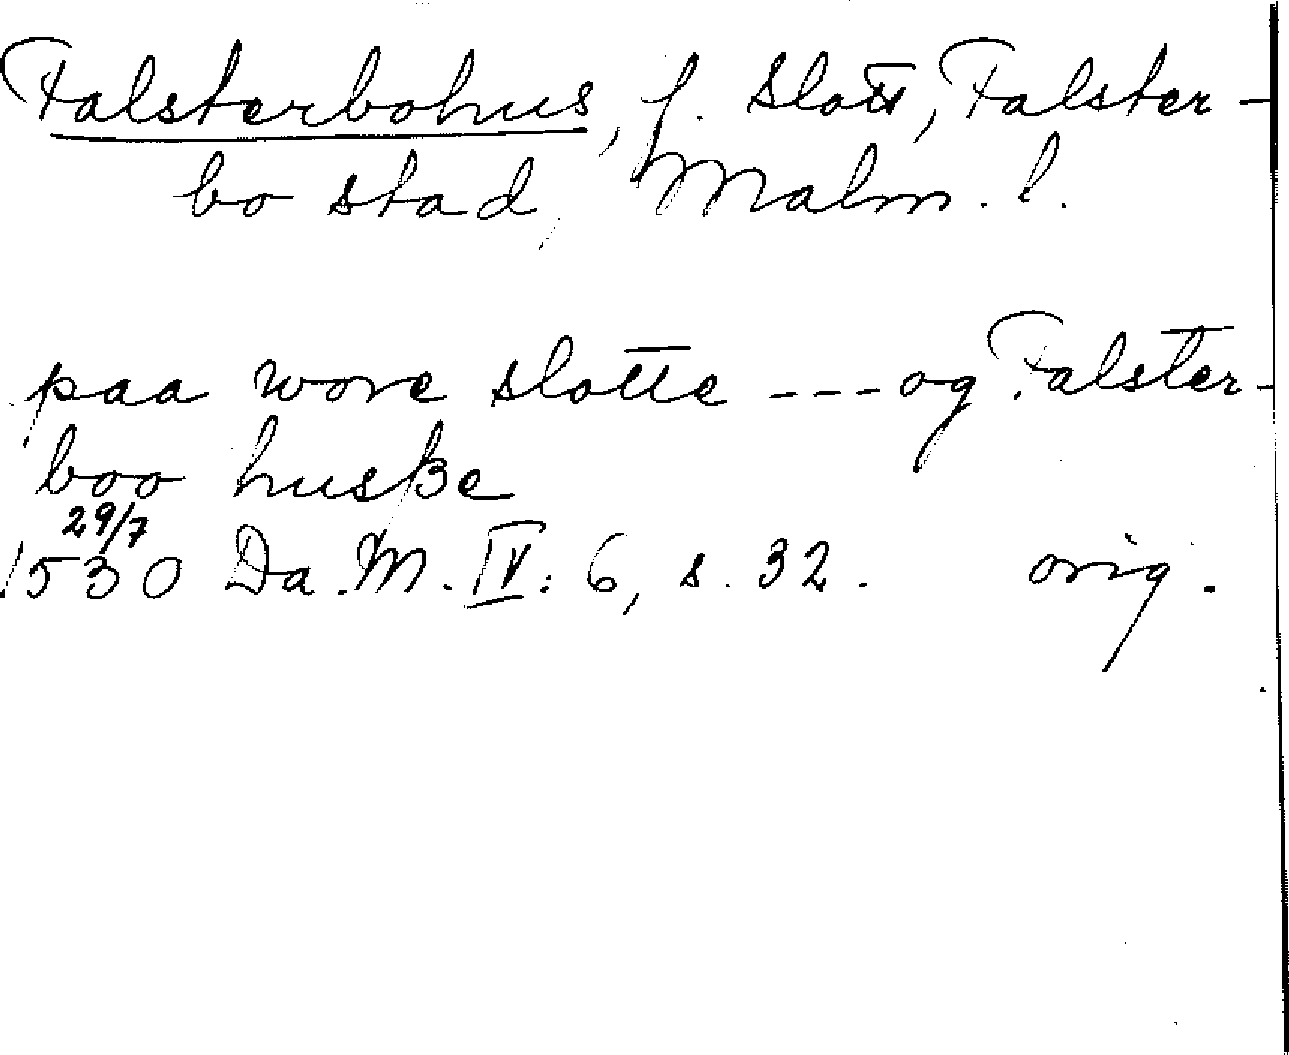 Falsterbohus, f. slott, Falster-
bo stad, Malm. l.
paa wore slotte --- og Falster-
boo husße
29/7
1530 Da. M. IV: 6, s. 32. orig.